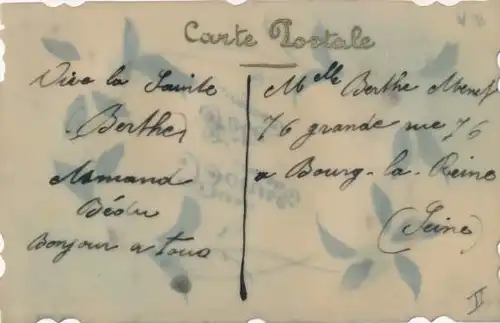 Carte Postale
Vive la Sainte
Berthe
Armand
Bédu
Bonjour a tous
Melle Berthe
76 grande rue 76
a Bourg-la-Reine
(Seine)
II